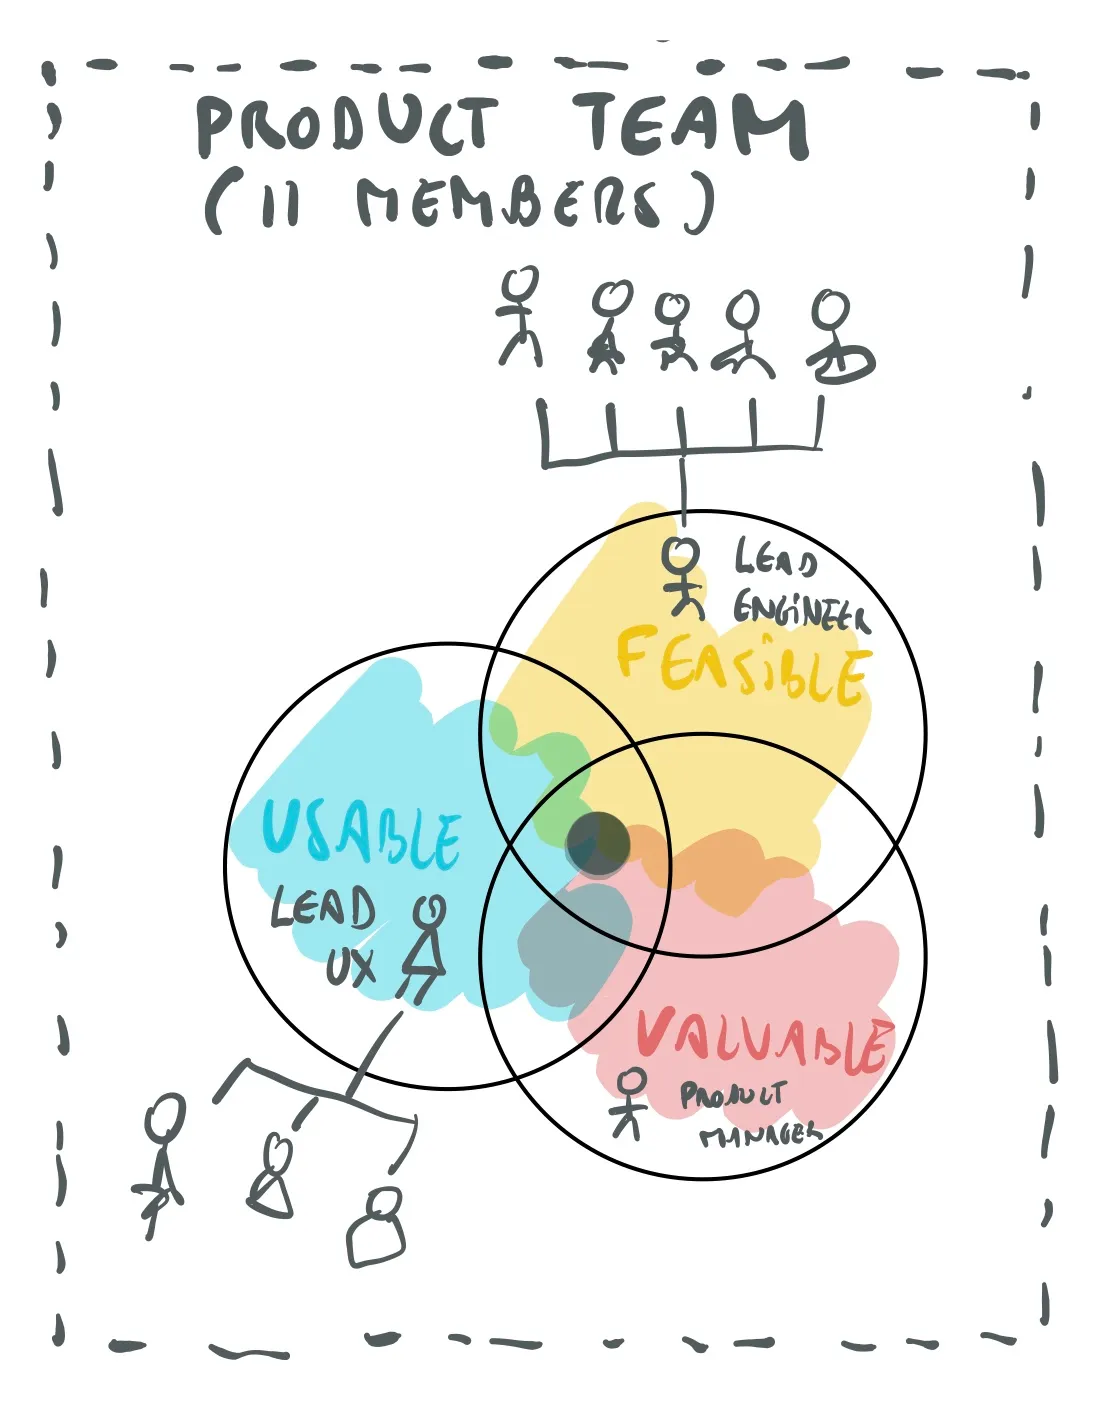 PRODUCT TEAM
(11 MEMBERS)
LEAD
ENGINEER
FEASIBLE
USABLE
LEAD
UX
VALUABLE
PRODUCT
MANAGER